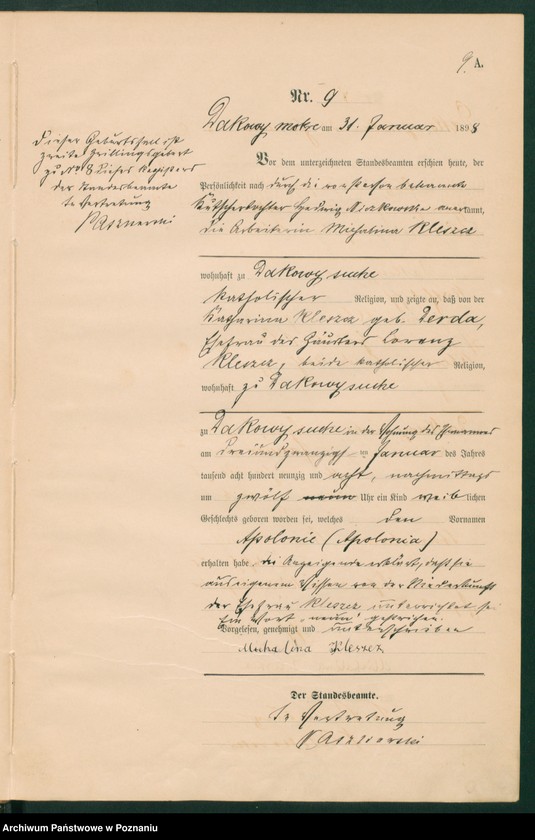 9. A.
Nr. 9
Dakowy mokre am 31. Januar 1898
Dieser Geburtsfall ist
zweite Zwillingsgeburt
zu № 8 dieses Registers
der Standesbeamte
In Vertretung
Vor dem unterzeichneten Standesbeamten erschien heute, der
Persönlichkeit nach durch die von Person bekannte
Kutschertochter Hedwig anerkannt,
die Arbeiterin Michalina Kleszcz
wohnhaft zu Dakowy suche
katholischer Religion, und zeigte an, daß von der
Katharina Kleszcz geb. Derda,
Ehefrau des Häuslers Lorenz
Kleszcz, beide katholischer Religion,
wohnhaft zu Dakowy suche
zu Dakowy suche in der Wohnung des Ehemannes
am dreiundzwanzigsten Januar des Jahres
tausend acht hundert neunzig und acht, nachmittags
um zwölf neun Uhr ein Kind weiblichen
Geschlechts geboren worden sei, welches den Vornamen
Apolonie (Apolonia)
erhalten habe die Anzeigende erklärt, daß sie
aus eigenem Wissen von der Niederkunft
der Ehefrau Kleszcz unterrichtet sei
Ein Wort „neun" gestrichen.
Vorgelesen, genehmigt und unterschrieben
Michalina Kleszcz
Der Standesbeamte.
In Vertretung
Archiwum Państwowe w Poznaniu